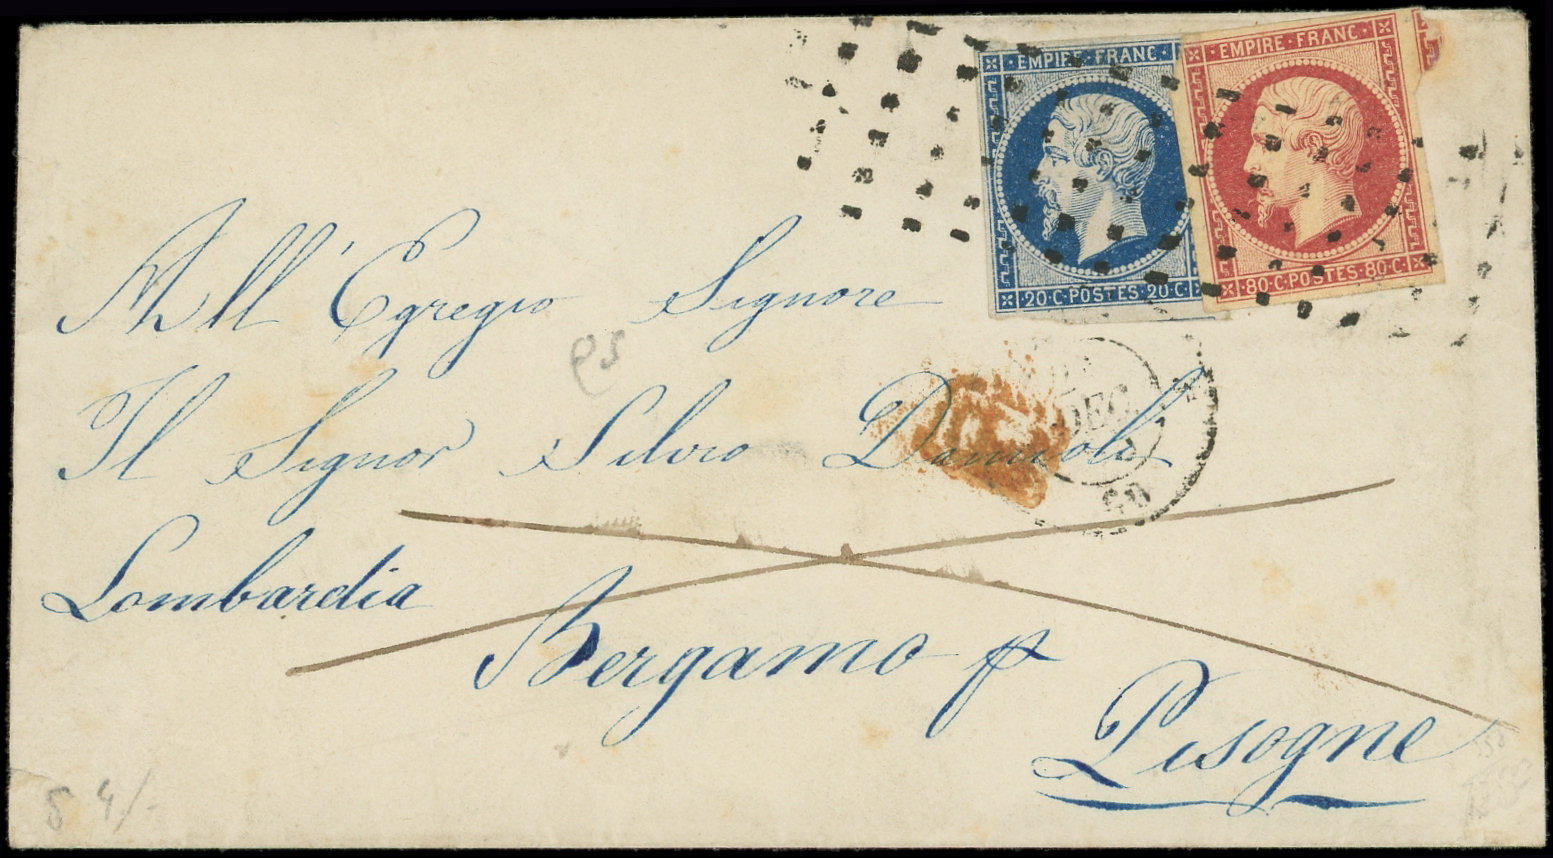 EMPIRE · FRANC ·
20 · C · POSTES · 20 · C
EMPIRE · FRANC ·
80 · C · POSTES · 80 · C
All' Egregio Signore
Il Signor Silvio Damioli
Lombardia
Bergamo p
Pisogne
DEC
60
54/-